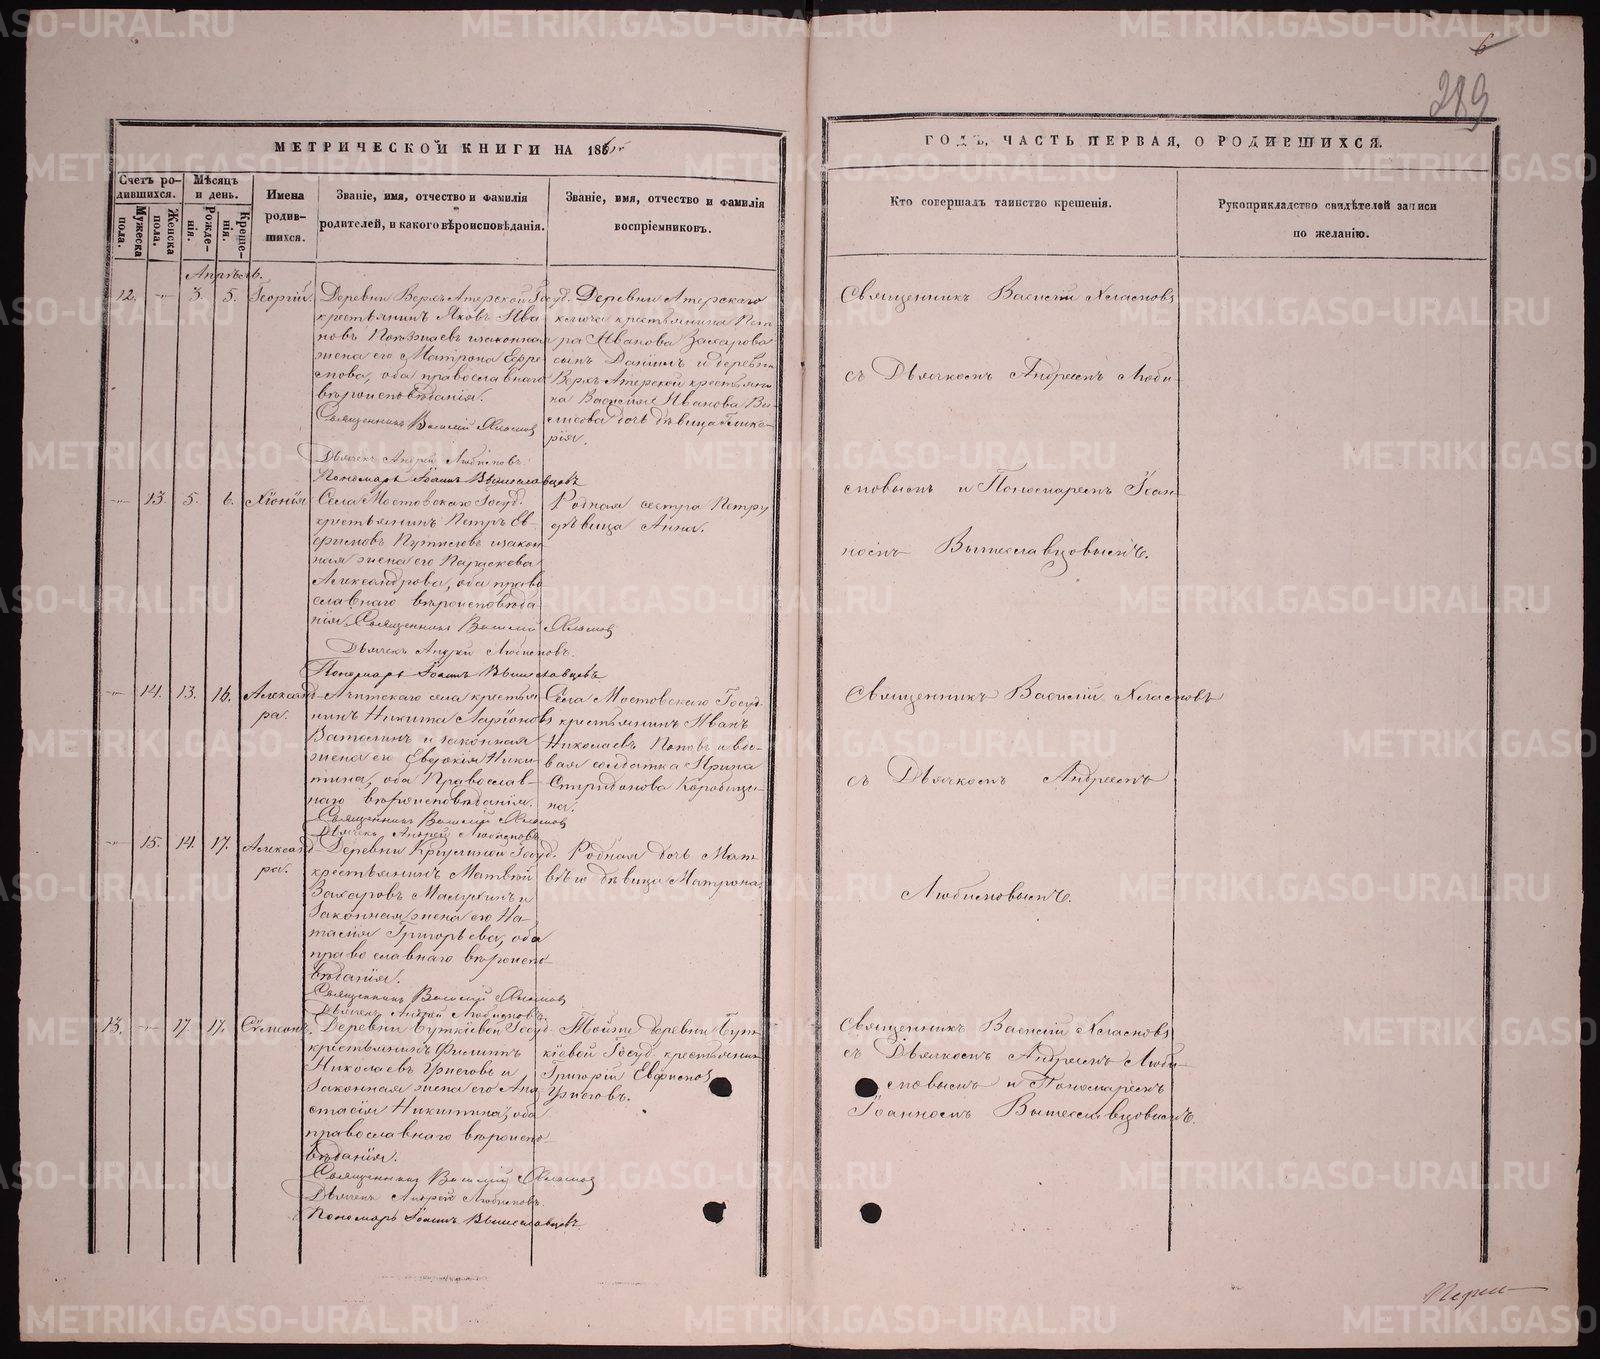 6
289
МЕТРИЧЕСКОЙ КНИГИ НА 186
ГОДЪ, ЧАСТЬ ПЕРВАЯ, О РОДИВШИХСЯ.
Счетъ ро-
дившихся.
Мужеска
пола.
Женска
пола.
Мѣсяцъ
и день.
Рожде-
нія.
Креще-
нія.
Имена
родив-
шихся.
Званіе, имя, отчество и фамилія
родителей, и какого вѣроисповѣданія.
Званіе, имя, отчество и фамилія
воспріемниковъ.
Кто совершалъ таинство крещенія.
Рукоприкладство свидѣтелей записи
по желанію.
Апрѣль.
12. 3. 5. Георгій.
Деревни Верхъ Атерской Госуд.
крестьянинъ Яковъ Ива-
новъ изаконная
жена его Матрона Ефре-
мова, оба православнаго
вѣроисповѣданія.
Священникъ Василій Хлызовъ
Дьячекъ Андрей Любимовъ.
Пономарь Іоаннъ Вышеславцовъ
Деревни Атерскаго
ключа крестьянина Пет-
ра Иванова Захарова
сынъ Даніилъ и деревни
Верхъ Атерской крестьяни-
на Василія Иванова
дочь дѣвица Глике-
рія.
Священникъ Василій
съ Дьячкомъ Андреемъ Люби-
мовымъ и Пономаремъ Іоан-
номъ Вышеславцовымъ.
13. 5. 6. Хіонія
Села Мостовскаго Госуд.
крестьянинъ Петръ Ев-
фимовъ изакон-
ная жена его Параскева
Александрова, оба право-
славнаго вѣроисповѣда-
нія. Священникъ Василій
Дьячекъ Андрей Любимовъ.
Пономарь Іоаннъ Вышеславцовъ
Родная сестра Петру
дѣвица Анна.
14. 13. 16. Александ-
ра.
Ачитскаго села крестья-
нинъ Никита Ларіоновъ
Ватолинъ и законная
жена его Евдокія Ники-
тина, оба Православ-
наго вѣроисповѣданія.
Священникъ Василій
Дьячекъ Андрей Любимовъ
Села Мостовскаго Госуд.
крестьянинъ Иванъ
Николаевъ Поповъ и вдо-
вая солдатка Ирина
Спиридонова Коробицы-
на.
Священникъ Василій
съ Дьячкомъ Андреемъ
Любимовымъ.
15. 14. 17. Александ-
ра.
Деревни Госуд.
крестьянинъ Матвѣй
Захаровъ и
законная жена его На-
тасія Григорьева, оба
православнаго вѣроиспо-
вѣданія.
Священникъ Василій
Дьячекъ Андрей Любимовъ.
Родная дочь Мат-
вѣю дѣвица Матрона.
13. 17. 17. Сѵмеонъ.
Деревни Буткіевой Госуд.
крестьянинъ Филиппъ
Николаевъ и
законная жена его Ана-
стасія Никитина, оба
православнаго вѣроиспо-
вѣданія.
Священникъ Василій
Дьячекъ Андрей Любимовъ.
Пономарь Іоаннъ Вышеславцовъ.
Тойже деревни Бут-
кіевой Госуд. крестьянинъ
Григорій Евфимовъ
Священникъ Василій
съ Дьячкомъ Андреемъ Люби-
мовымъ и Пономаремъ
Іоанномъ Вышеславцовымъ.
METRIKI.GASO-URAL.RU